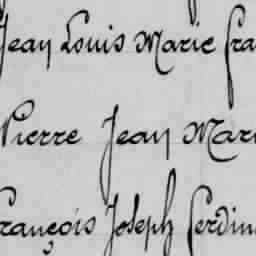 Jean Louis Marie Fra
Pierre Jean Mari
François Joseph Ferdin